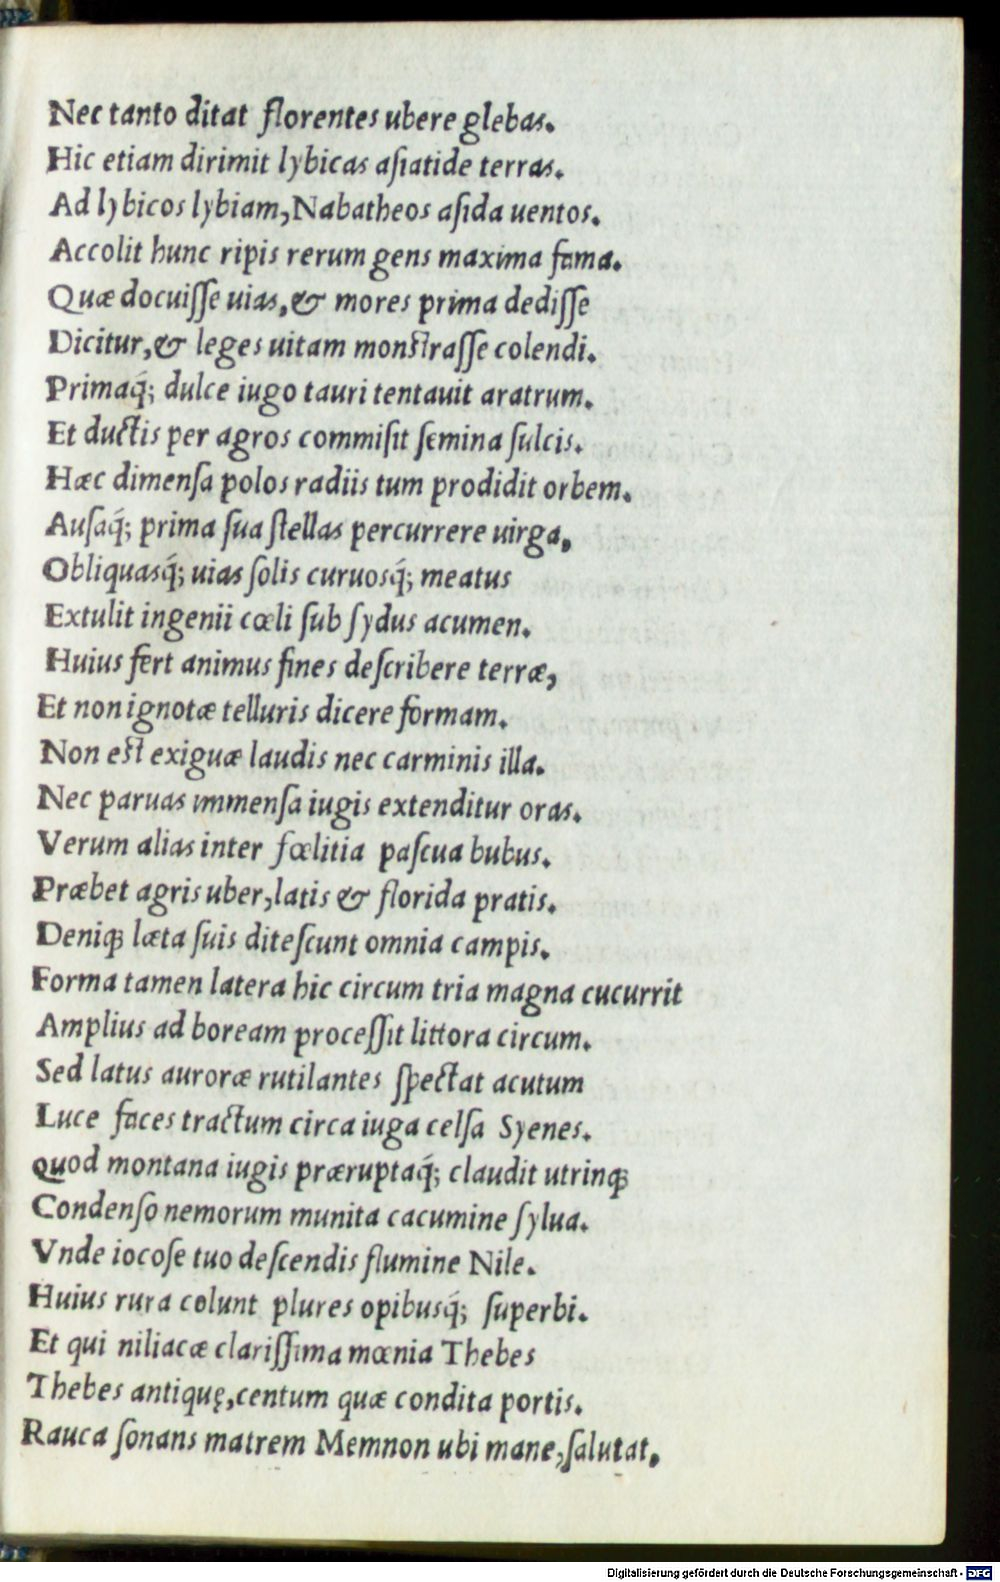 Nec tanto ditat florentes ubere glebas.
Hic etiam dirimit lybicas aſiatide terras.
Ad lybicos lybiam, Nabatheos aſida uentos.
Accolit hunc ripis rerum gens maxima fama.
Quæ docuiſſe uias, & mores prima dediſſe
Dicitur, & leges uitam monſtraſſe colendi.
Primaq́; dulce iugo tauri tentauit aratrum.
Et ductis per agros commiſit ſemina ſulcis.
Hæc dimenſa polos radiis tum prodidit orbem.
Auſaq́; prima ſua ſtellas percurrere uirga,
Obliquasq́; uias ſolis curuosq́; meatus
Extulit ingenii cœli ſub ſydus acumen.
Huius fert animus fines deſcribere terræ,
Et non ignotæ telluris dicere formam.
Non eſt exiguæ laudis nec carminis illa.
Nec paruas immenſa iugis extenditur oras.
Verum alias inter fœlitia paſcua bubus.
Præbet agris uber, latis & florida pratis.
Deniqꝫ læta ſuis diteſcunt omnia campis.
Forma tamen latera hic circum tria magna cucurrit
Amplius ad boream proceſſit littora circum.
Sed latus auroræ rutilantes ſpectat acutum
Luce faces tractum circa iuga celſa Syenes.
Quod montana iugis præruptaq́; claudit utrinqꝫ
Condenſo nemorum munita cacumine ſylua.
Vnde iocoſe tuo deſcendis flumine Nile.
Huius rura colunt plures opibusq́; ſuperbi.
Et qui niliacæ clariſſima mœnia Thebes
Thebes antiquę, centum quæ condita portis.
Rauca ſonans matrem Memnon ubi mane, ſalutat,
Digitalisierung gefördert durch die Deutsche Forschungsgemeinschaft - DFG